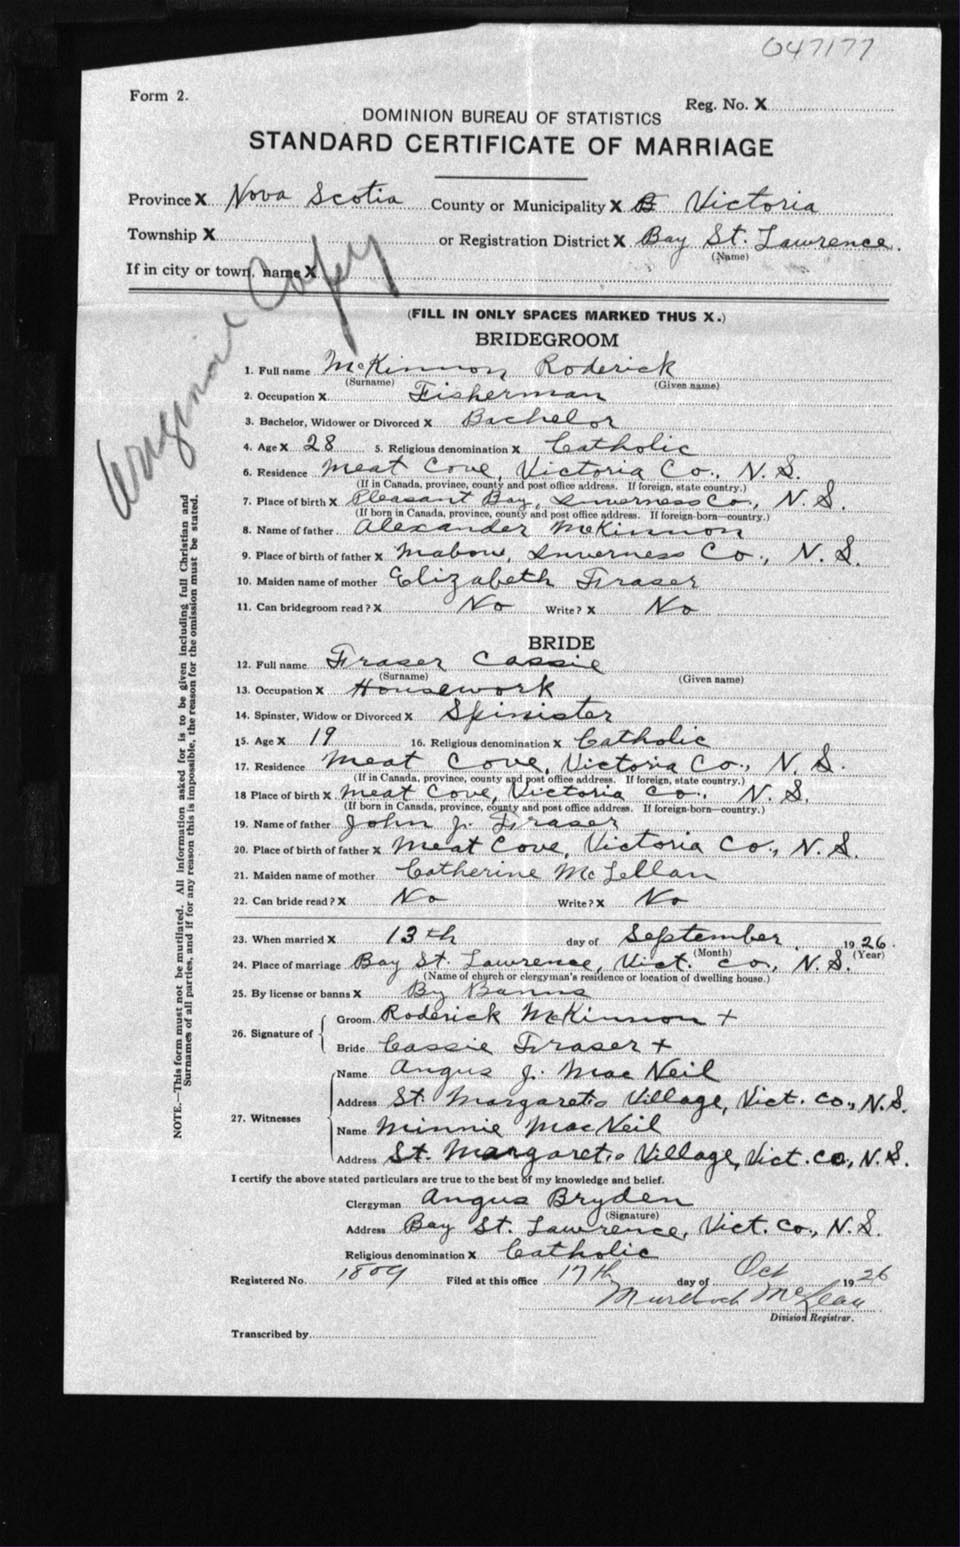 047177
Form 2.
Reg. No. X
DOMINION BUREAU OF STATISTICS
STANDARD CERTIFICATE OF MARRIAGE
Province X Nova Scotia County or Municipality X B Victoria
Township X or Registration District X Bay St. Lawrence.
(Name)
If in city or town, name X
Original Copy
(FILL IN ONLY SPACES MARKED THUS X.)
BRIDEGROOM
1. Full name McKinnon Roderick
(Surname) (Given name)
2. Occupation X Fisherman
3. Bachelor, Widower or Divorced X Bachelor
4. Age X 28 5. Religious denomination X Catholic
6. Residence Meat Cove, Victoria Co., N.S.
(If in Canada, province, county and post office address. If foreign, state country.)
7. Place of birth X Pleasant Bay, Inverness Co., N.S.
(If born in Canada, province, county and post office address. If foreign-born—country.)
8. Name of father Alexander McKinnon
9. Place of birth of father X Mabou, Inverness Co., N.S.
10. Maiden name of mother Elizabeth Fraser
11. Can bridegroom read? X No Write? X No
BRIDE
12. Full name Fraser Cassie
(Surname) (Given name)
13. Occupation X Housework
14. Spinster, Widow or Divorced X Spinister
15. Age X 19 16. Religious denomination X Catholic
17. Residence Meat Cove, Victoria Co., N.S.
(If in Canada, province, county and post office address. If foreign, state country.)
18 Place of birth X Meat Cove, Victoria Co., N.S.
(If born in Canada, province, county and post office address. If foreign-born—country.)
19. Name of father John J. Fraser
20. Place of birth of father X Meat Cove, Victoria Co., N.S.
21. Maiden name of mother Catherine McLellan
22. Can bride read? X No Write? X No
23. When married X 13th day of September 1926.
(Month) (Year)
24. Place of marriage Bay St. Lawrence, Vict. Co., N.S.
(Name of church or clergyman's residence or location of dwelling house.)
25. By license or banns X By Banns
26. Signature of Groom Roderick McKinnon +
Bride Cassie Fraser +
27. Witnesses Name Angus J. MacNeil
Address St. Margarets Village, Vict. Co., N.S.
Name Minnie MacNeil
Address St. Margarets Village, Vict. Co., N.S.
I certify the above stated particulars are true to the best of my knowledge and belief.
Clergyman Angus Bryden
(Signature)
Address Bay St. Lawrence, Vict. Co., N.S.
Religious denomination X Catholic
Registered No. 1809 Filed at this office 17th day of Oct 1926
Murdoch McLean
Division Registrar.
Transcribed by
NOTE.—This form must not be mutilated. All information asked for is to be given including full Christian and
Surnames of all parties, and if for any reason this is impossible, the reason for the omission must be stated.